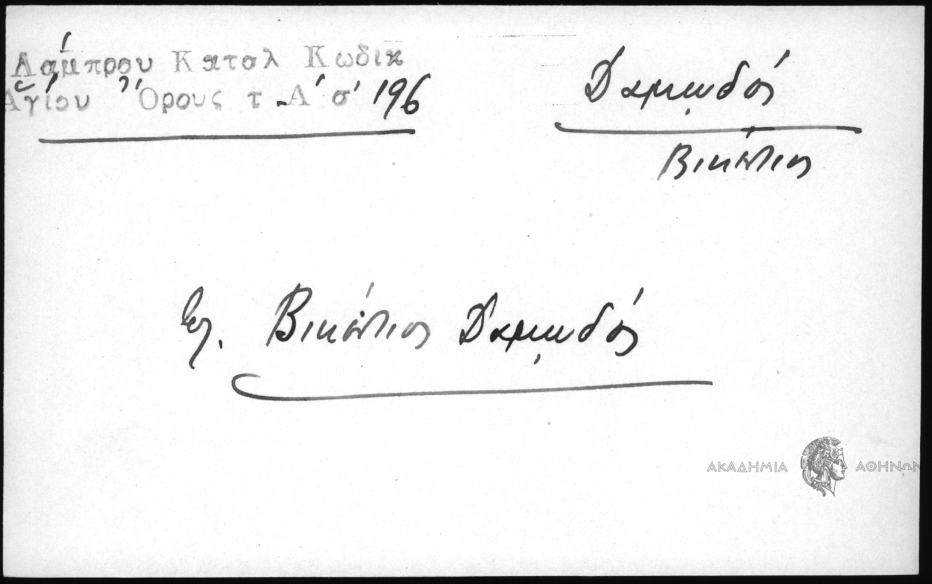 Λάμπρου Καταλ Κωδικ
Ἁγίου Ὄρους τ. Α' σ' 196
Δαμῳδός
Βικέντιος
Βικέντιος Δαμῳδός
ΑΚΑΔΗΜΙΑ ΑΘΗΝΩΝ